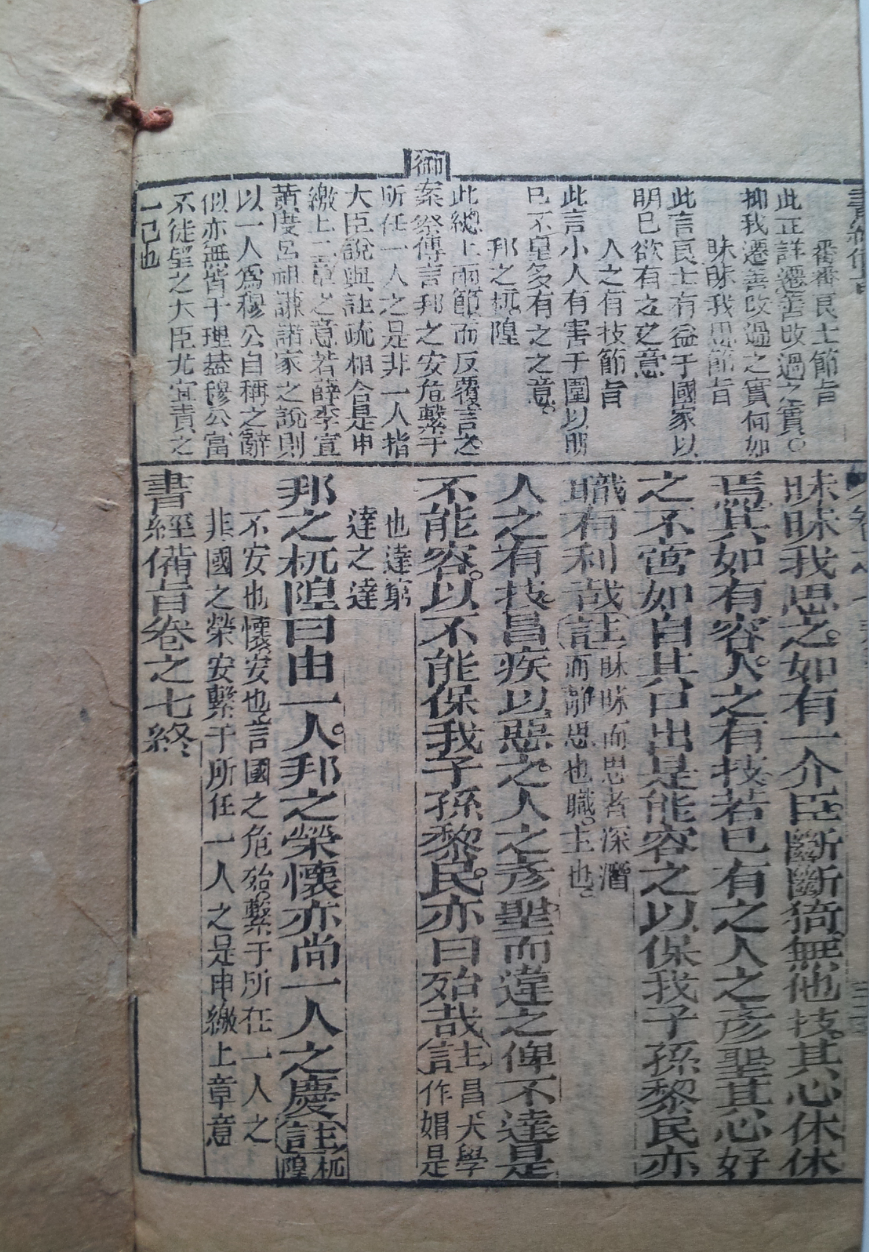 番番良士節旨
此正詳遷善改過之實。
抑我遷善改過之實何如
昧昧我思節旨
此言良士有益于國家以
明已欲有之之意
人之有技節旨
此言小人有害于國以明
已不皇多有之之意。
邦之杌隉
此總上兩節而反覆言之
御案蔡傳言邦之安危繫于
所任一人之是非一人指
大臣說與註疏相合是申
繳上二章之意若薛季宣
黃度呂祖謙諸家之說則
以一人為穆公自稱之辭
似亦無背于理葢穆公富
不徒望之大臣尤宜責之
一己也
昧昧我思之。如有一介臣。斷斷猗。無他技。其心休休
焉其如有容。人之有技若已有之人之彥聖其心好
之不啻如自其口出是能容之以保我子孫黎民亦
職有利哉註昧昧而思者深潛
而靜思也職。主也。
人之有技冒疾以惡之。人之彥聖而違之俾不達是
不能容。以不能保我子孫黎民。亦曰殆哉註冒。大學
作媢是
也達窮
達之達
邦之杌隉曰由一人。邦之榮懷亦尚一人之慶註杌
隉
不安也懷安也言國之危殆。繫于所任一人之
非國之榮安繫于所任一人之是申繳上章意
書經備旨卷之七終